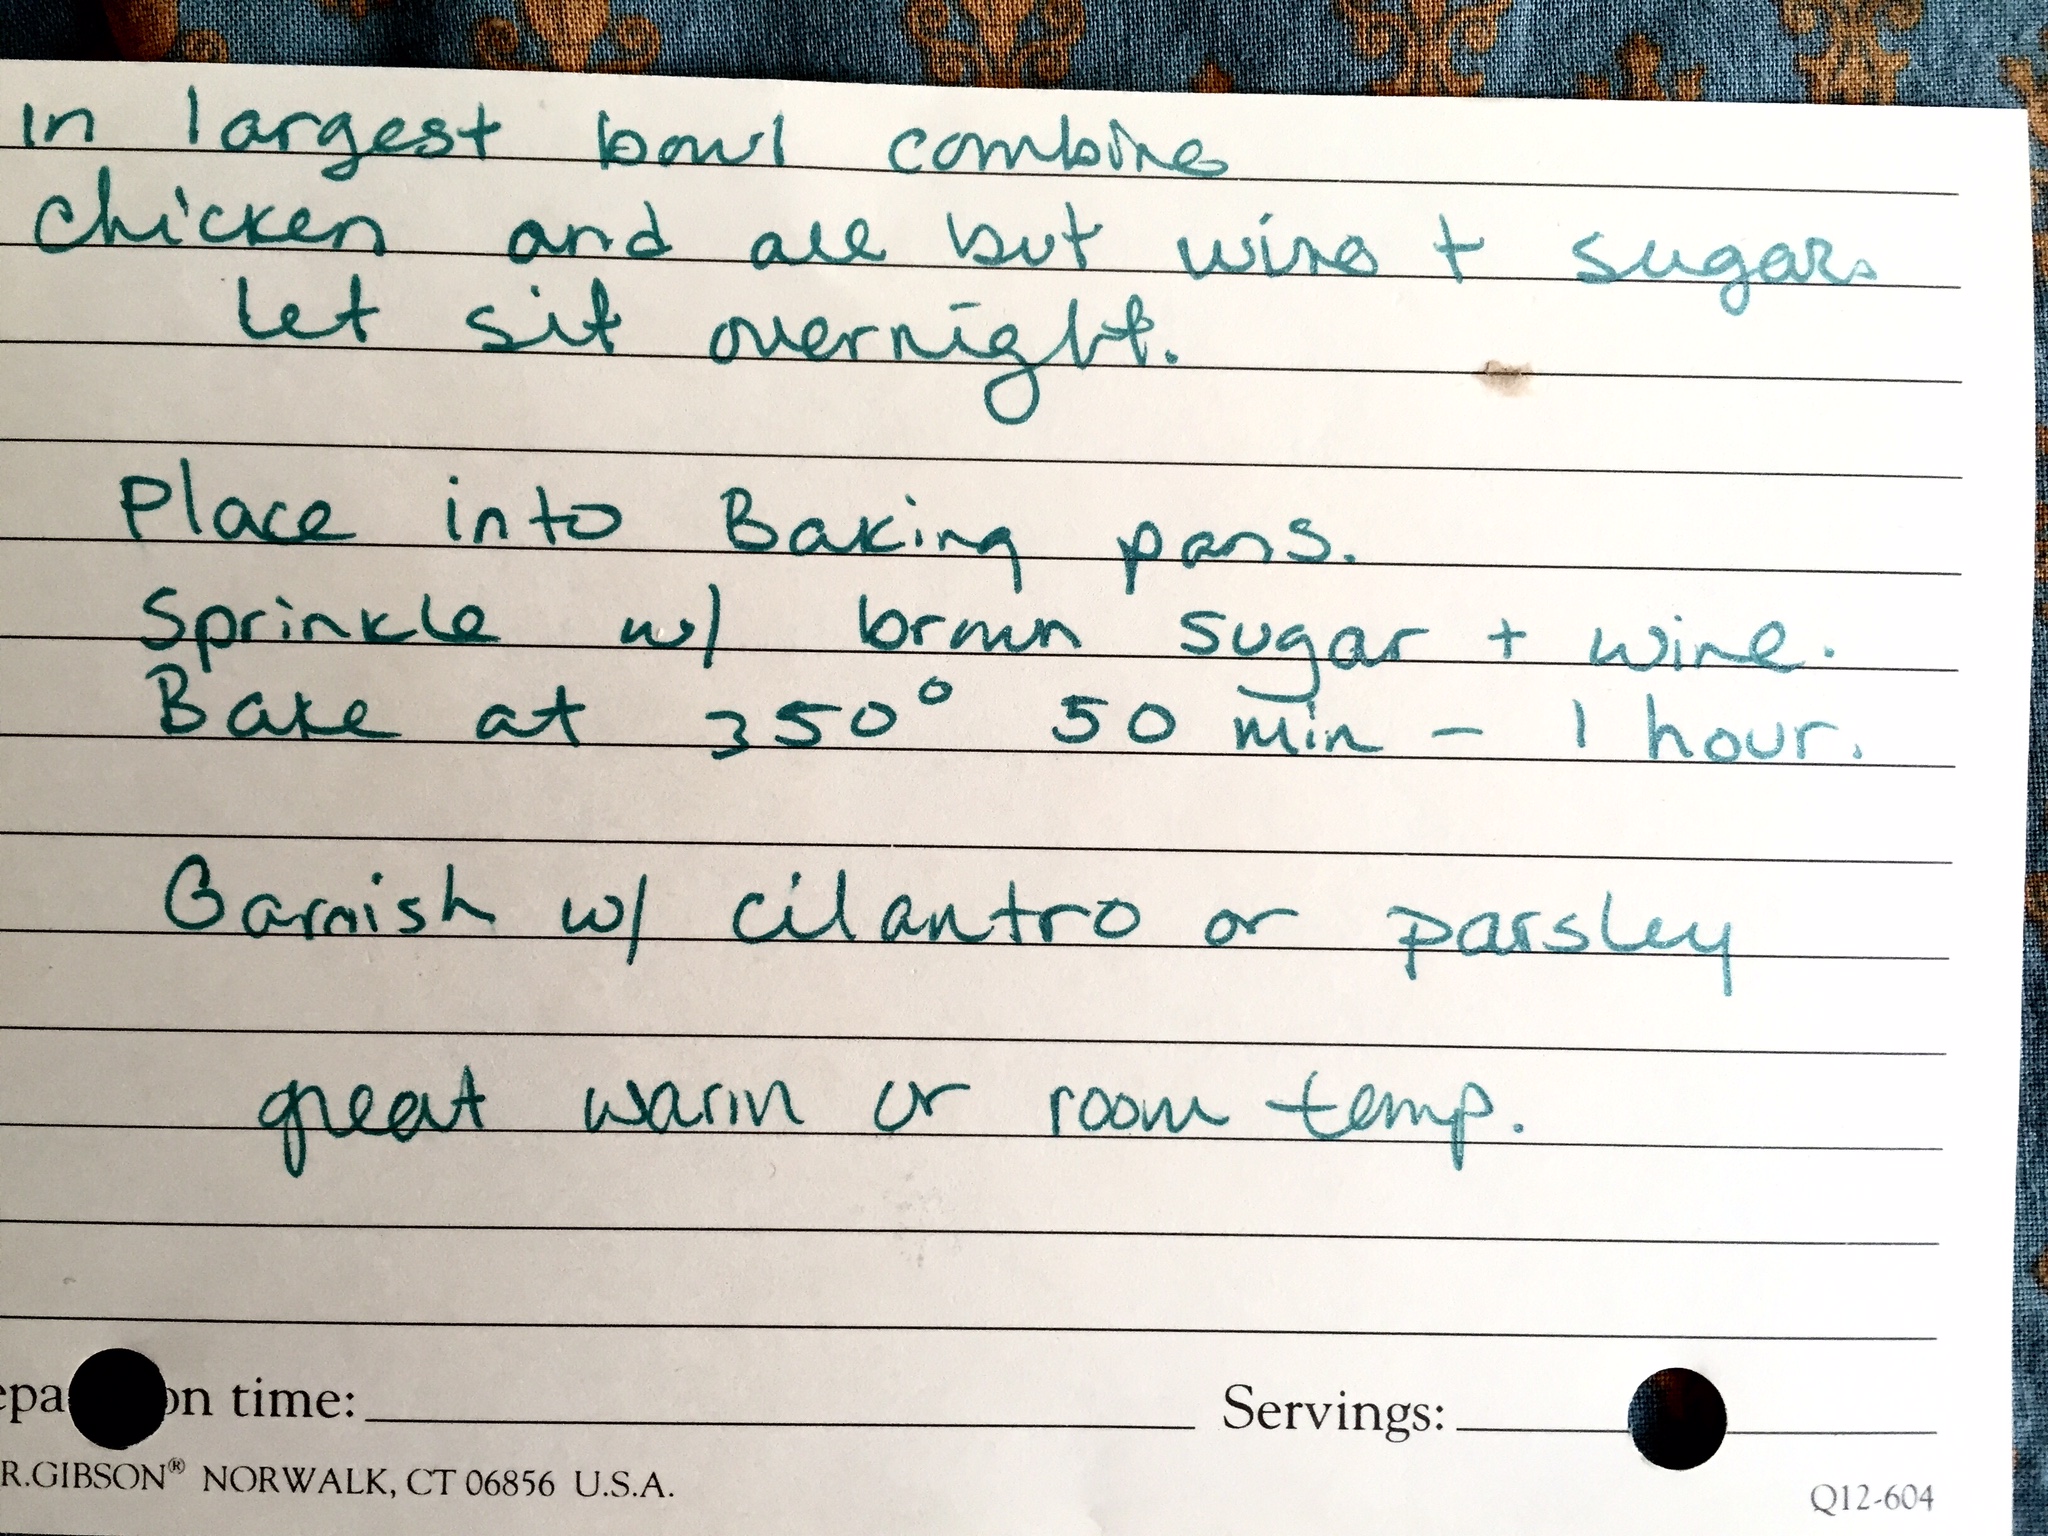 in largest bowl combine
chicken and all but wine + sugar.
let sit overnight.
Place into Baking pans.
Sprinkle w/ brown sugar + wine.
Bake at 350° 50 min - 1 hour.
Garnish w/ cilantro or parsley
great warm or room temp.
epa on time: Servings:
R.GIBSON® NORWALK, CT 06856 U.S.A. Q12-604